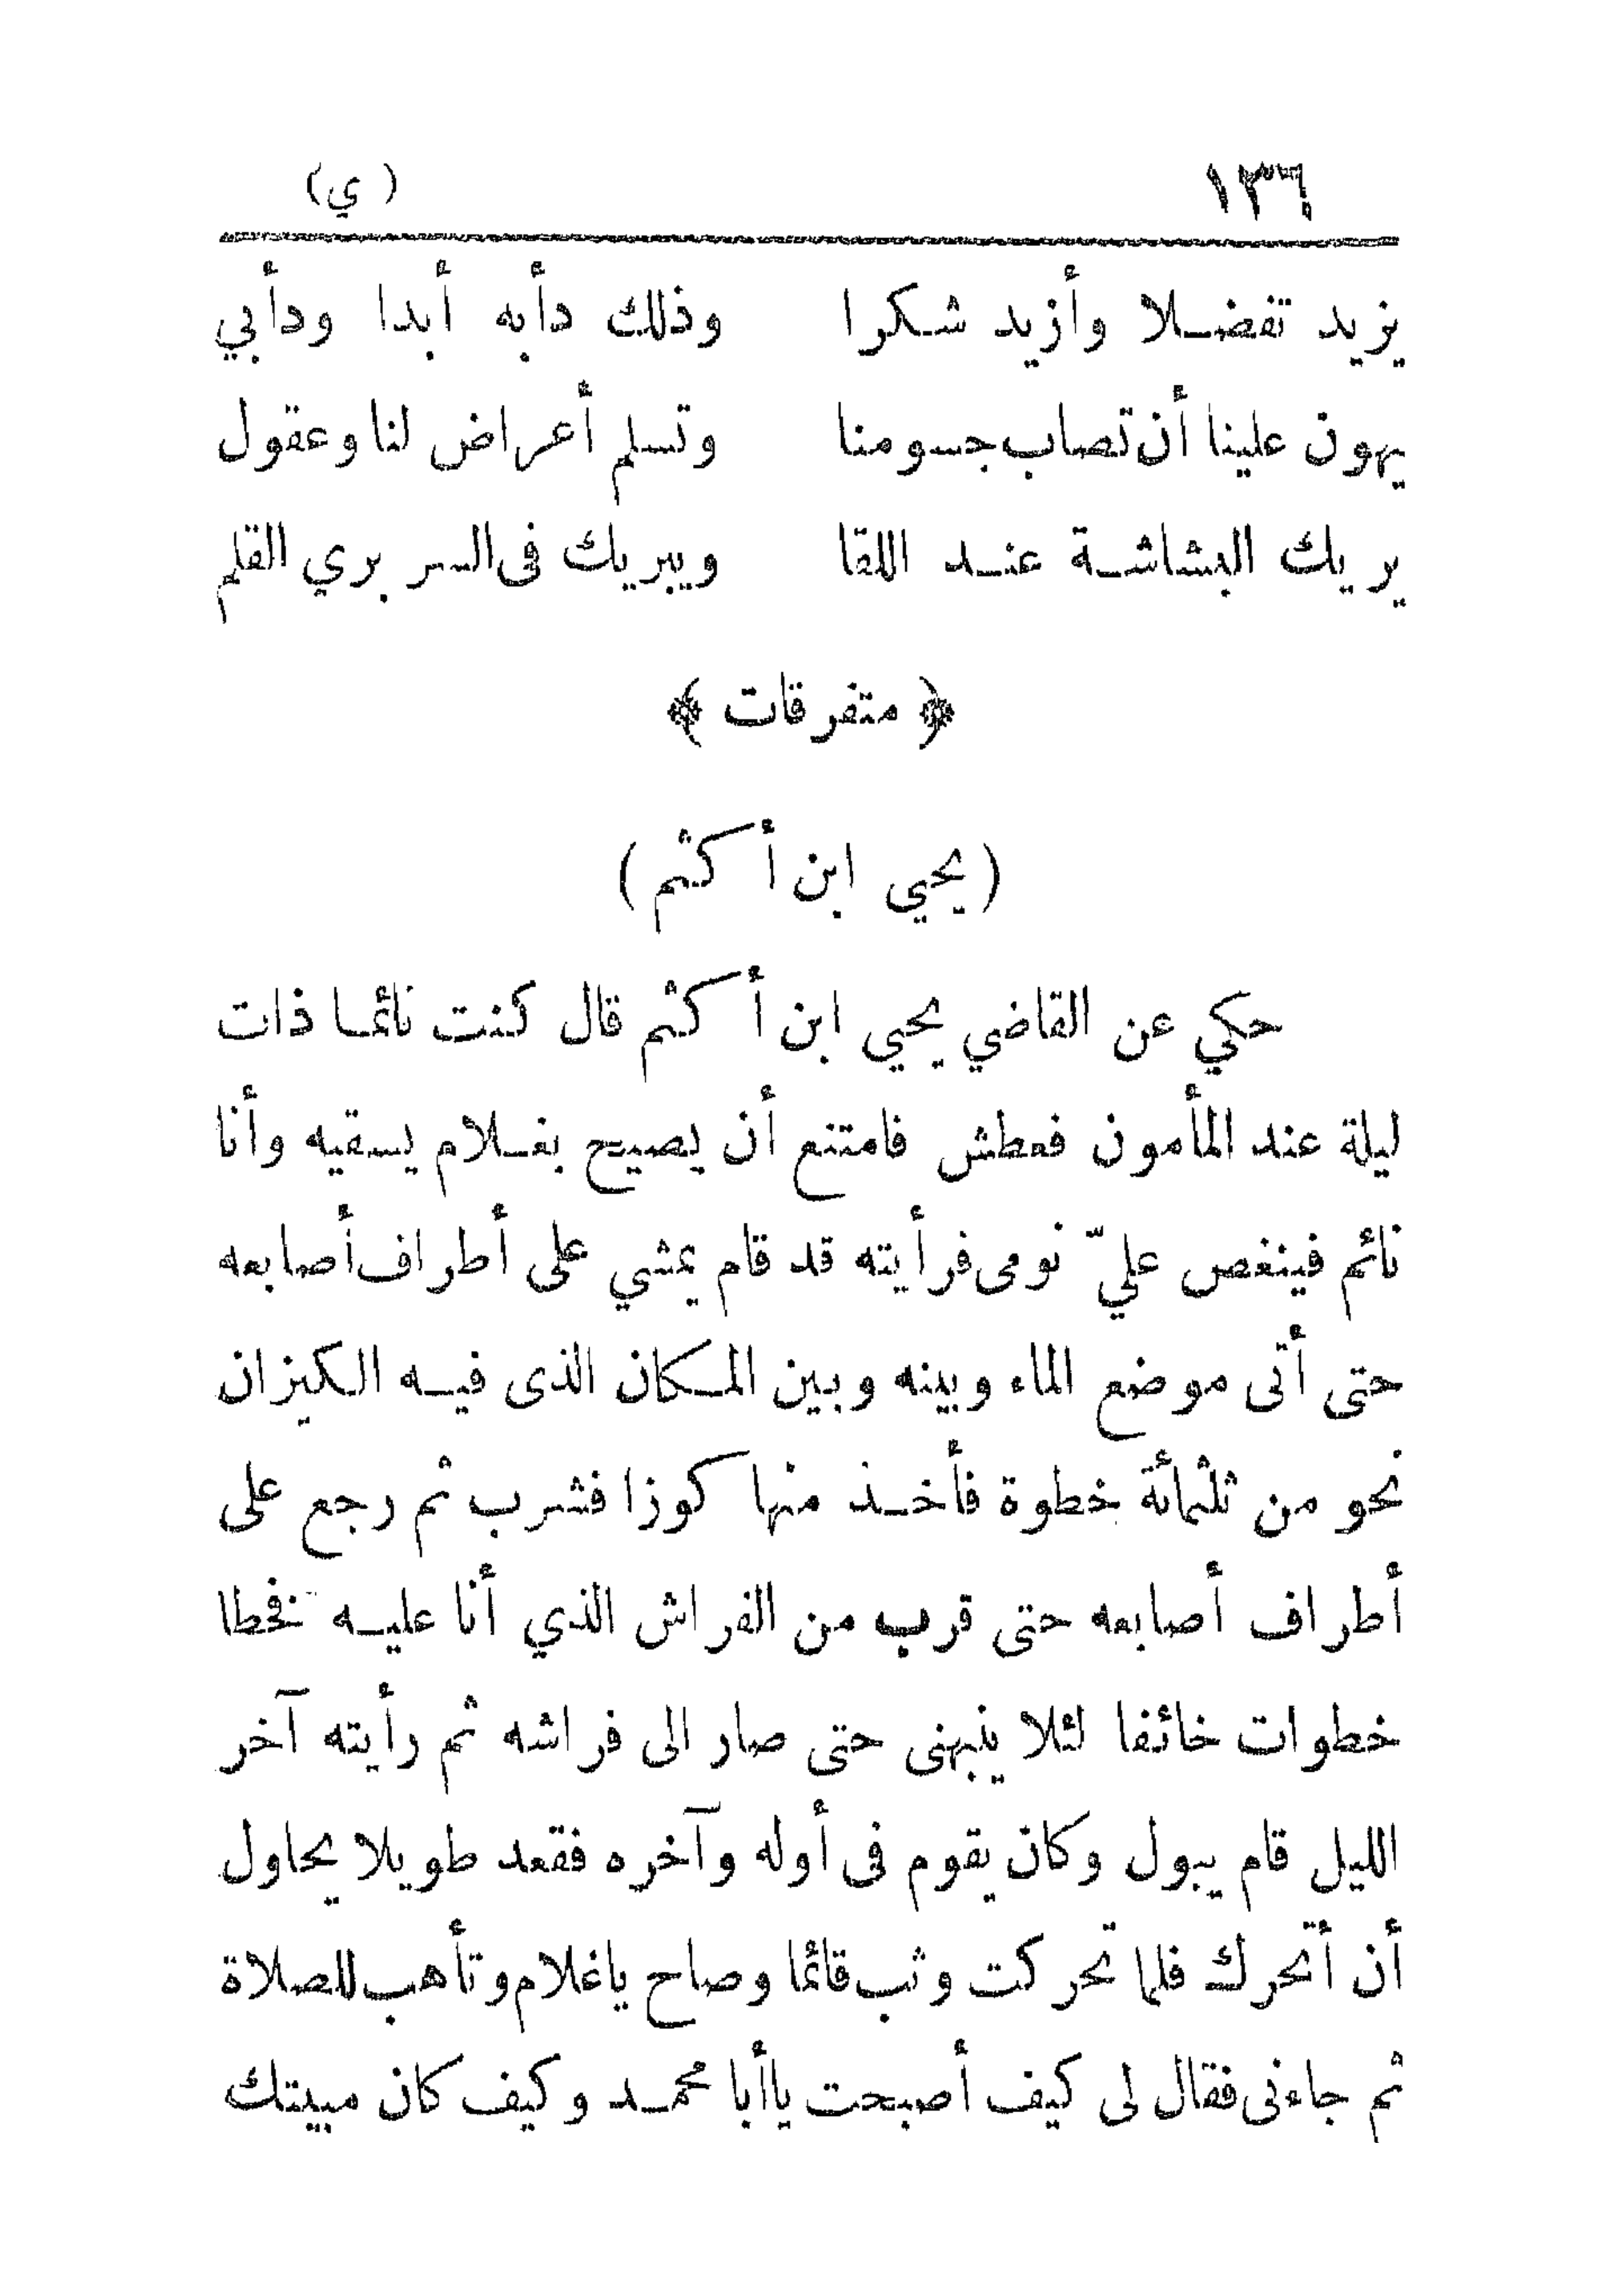 ١٣٦ (ي)
يزيد تفضلا وأزيد شكرا وذلك دأبه أبدا ودأبي
يهون علينا أن تصاب جسومنا وتسلم أعراض لنا وعقول
يريك البشاشة عند اللقا ويبريك فى السر بري القلم
﴿ متفرقات ﴾
(يحيي ابن أكثم)
حكي عن القاضي يحيي ابن أكثم قال كنت نائما ذات
ليلة عند المأمون فعطش فامتنع أن يصيح بغلام يسقيه وأنا
نائم فينغص عليّ نومى فرأيته قد قام يمشي على أطراف أصابعه
حتى أتى موضع الماء وبينه وبين المكان الذى فيه الكيزان
نحو من ثلثمائة خطوة فأخذ منها كوزا فشرب ثم رجع على
أطراف أصابعه حتى قرب من الفراش الذي أنا عليه فخطا
خطوات خائفا لئلا ينبهنى حتى صار الى فراشه ثم رأيته آخر
الليل قام يبول وكان يقوم فى أوله وآخره فقعد طويلا يحاول
أن أتحرك فلما تحركت وثب قائما وصاح ياغلام وتأهب للصلاة
ثم جاءنى فقال لى كيف أصبحت ياأبا محمد وكيف كان مبيتك